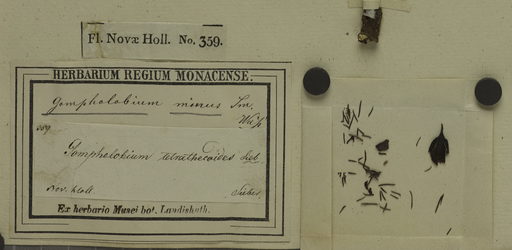 Fl. Novæ Holl. No. 359.
HERBARIUM REGIUM MONACENSE.
Gompholobium minus Sm.
359
Gompholobium tetrathecoides Sieb.
Nov. Holl. Sieber
Ex herbario Musei bot. Landishuth.